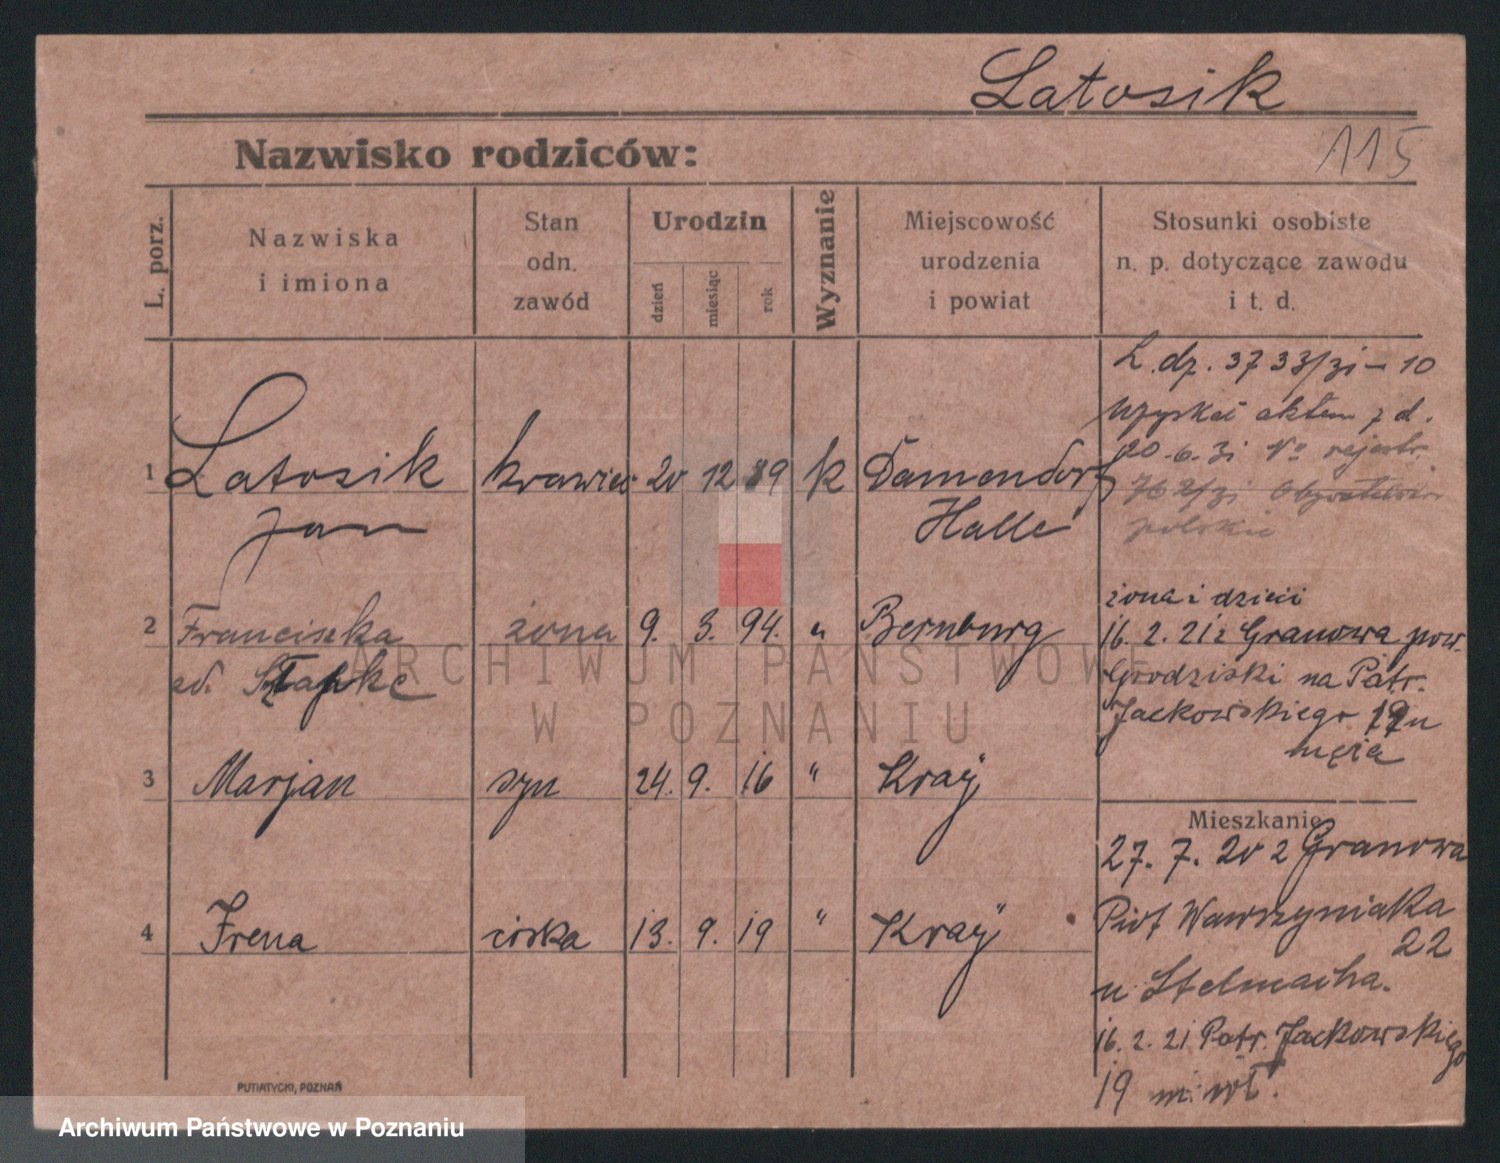 Latosik
115
Nazwisko rodziców:
L. porz.
Nazwiska
i imiona
Stan
odn.
zawód
Urodzin
dzień
miesiąc
rok
Wyznanie
Miejscowość
urodzenia
i powiat
Stosunki osobiste
n. p. dotyczące zawodu
i t. d.
L. dz. 3733/31 - 10
aktem z d.
20.6.31 No rejestr.
polskie
1 Latosik krawiec 20 12 89 k Damendorf
Jan Halle
2 Franciszka żona 9. 3. 94. " Bernburg
żona i dzieci
16.2.21 z Granowa pow.
Grodziski na Patr.
Jackowskiego 19 u
męża
3 Marjan syn 24. 9. 16 " Kraÿ
4 Irena córka 13. 9. 19 " Kraÿ
Mieszkanie
27. 7. 20 z Granowa
Piot Wawrzyniaka
22
u Stelmacha.
16. 2. 21 Patr. Jackowskiego
19 m. wł.
PUTIATYCKI, POZNAŃ
ARCHIWUM PAŃSTWOWE
W POZNANIU
Archiwum Państwowe w Poznaniu